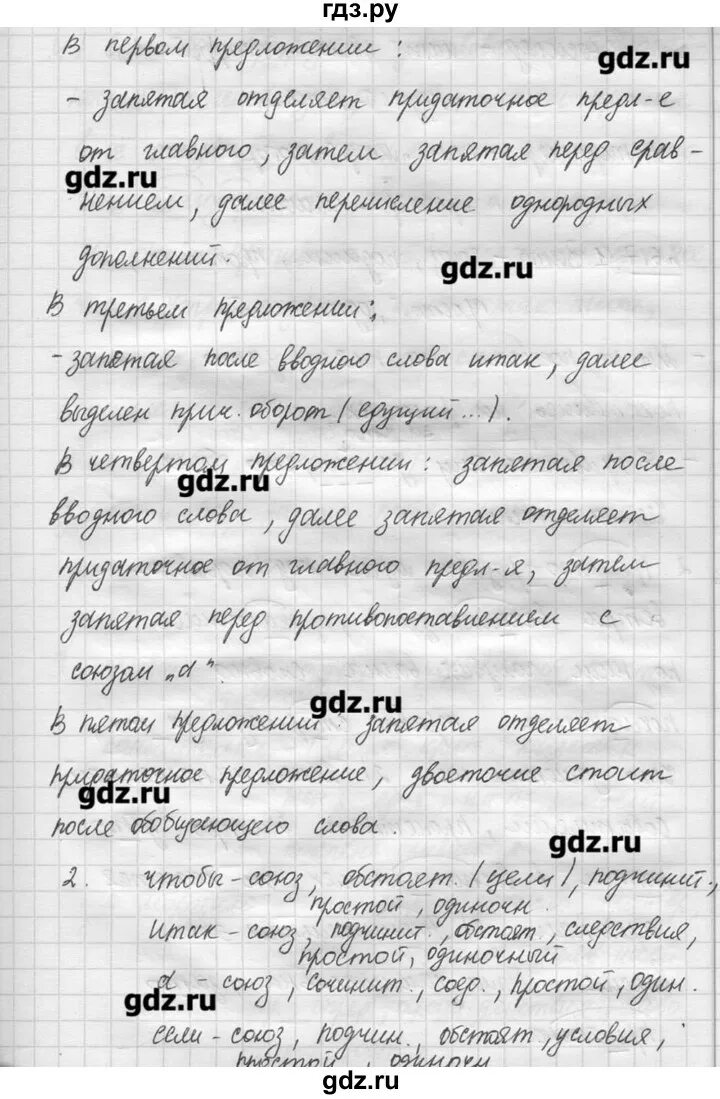 гдз.ру
В первом предложении :
gdz.ru
- запятая отделяет придаточное предл-е
от главного, затем запятая перед срав-
gdz.ru
нением, далее перечисление однородных
дополнений.
gdz.ru
В третьем предложении:,
- запятая после вводного слова итак, далее
выделен прич. оборот (едущий...).
В четвертом предложении: запятая после
gdz.ru
вводного слова, далее запятая отделяет
придаточное от главного предл-я, затем
запятая перед противопоставлением с
союзом „а".
gdz.ru
В пятом предложении: запятая отделяет
придаточное предложение, двоеточие стоит
gdz.ru
после обобщающего слова.
gdz.ru
2. чтобы - союз, обстоят. (цели), подчинит.,
простой, одиночн.
Итак - союз, подчинит., обстоят, следствия,
простой, одиночный
а - союз, сочинит., соед., простой, один.
gdz.ru
если - союз, подчин., обстоят, условия,
простой, одиночн
gdz.ru